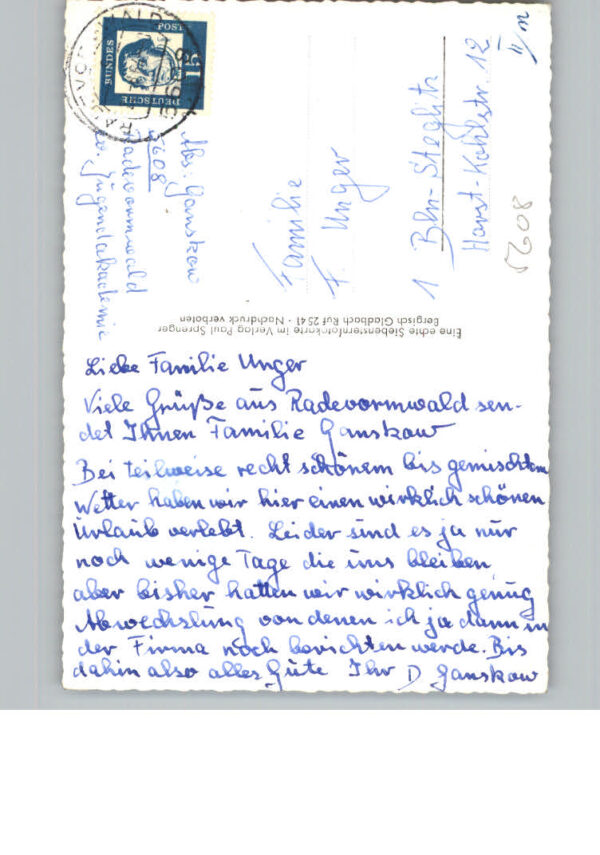 DEUTSCHE
BUNDES
POST
15
Abs: Ganskow
5608
Radevormwald
Jugendakademie
Familie
F. Unger
1 Bln-Steglitz
Horst-Kohlstr. 12
II/m
5608
Eine echte Siebensternfotokarte im Verlag Paul Sprenger
Bergisch Gladbach Ruf 2541 · Nachdruck verboten
Liebe Familie Unger
Viele Grüße aus Radevormwald sen-
det Ihnen Familie Ganskow
Bei teilweise recht schönem bis gemischtem
Wetter haben wir hier einen wirklich schönen
Urlaub verlebt. Leider sind es ja nur
noch wenige Tage die uns bleiben
aber bisher hatten wir wirklich genug
Abwechslung von denen ich ja dann in
der Firma noch berichten werde. Bis
dahin also alles Gute Ihr D Ganskow